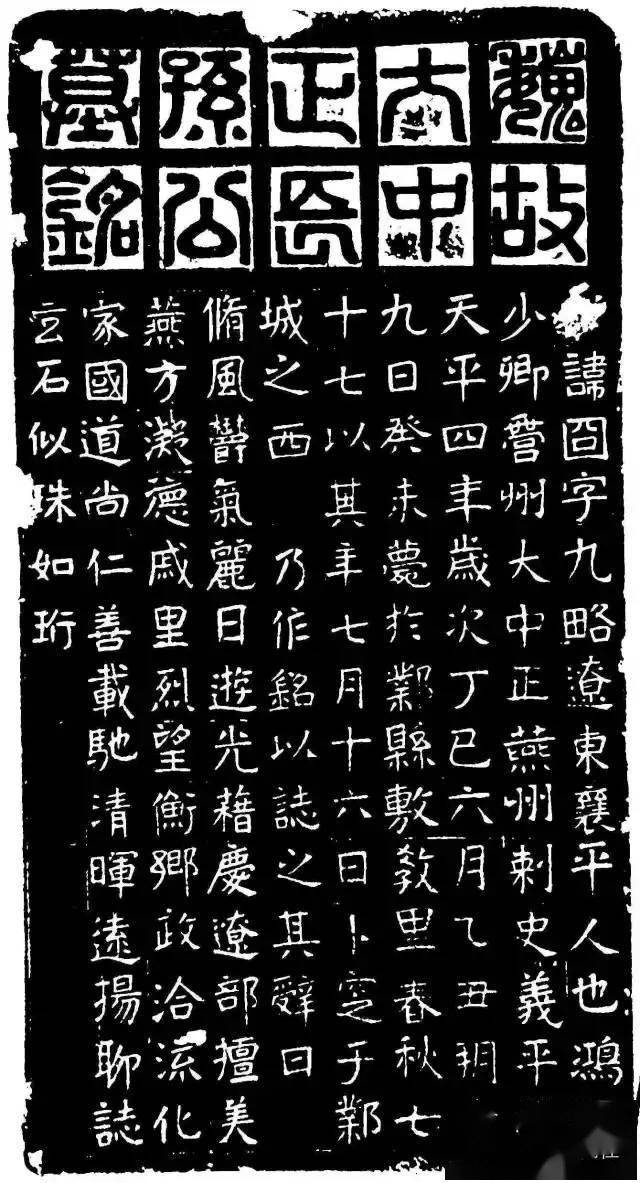 魏故
大中
正長
孫公
墓銘
諱囧字九略遼東襄平人也鴻
少卿營州大中正燕州刺史義平
天平四年歲次丁巳六月乙丑朔
九日癸未薨於鄴縣敷教里春秋七
十七以其年七月十六日卜窆于鄴
城之西 乃作銘以誌之其辭曰
脩風欝氣麗日遊光藉慶遼部擅美
燕方凝德戚里烈望衡鄉政洽流化
家國道尚仁善載馳清暉遠揚聊誌
玄石似珠如珩